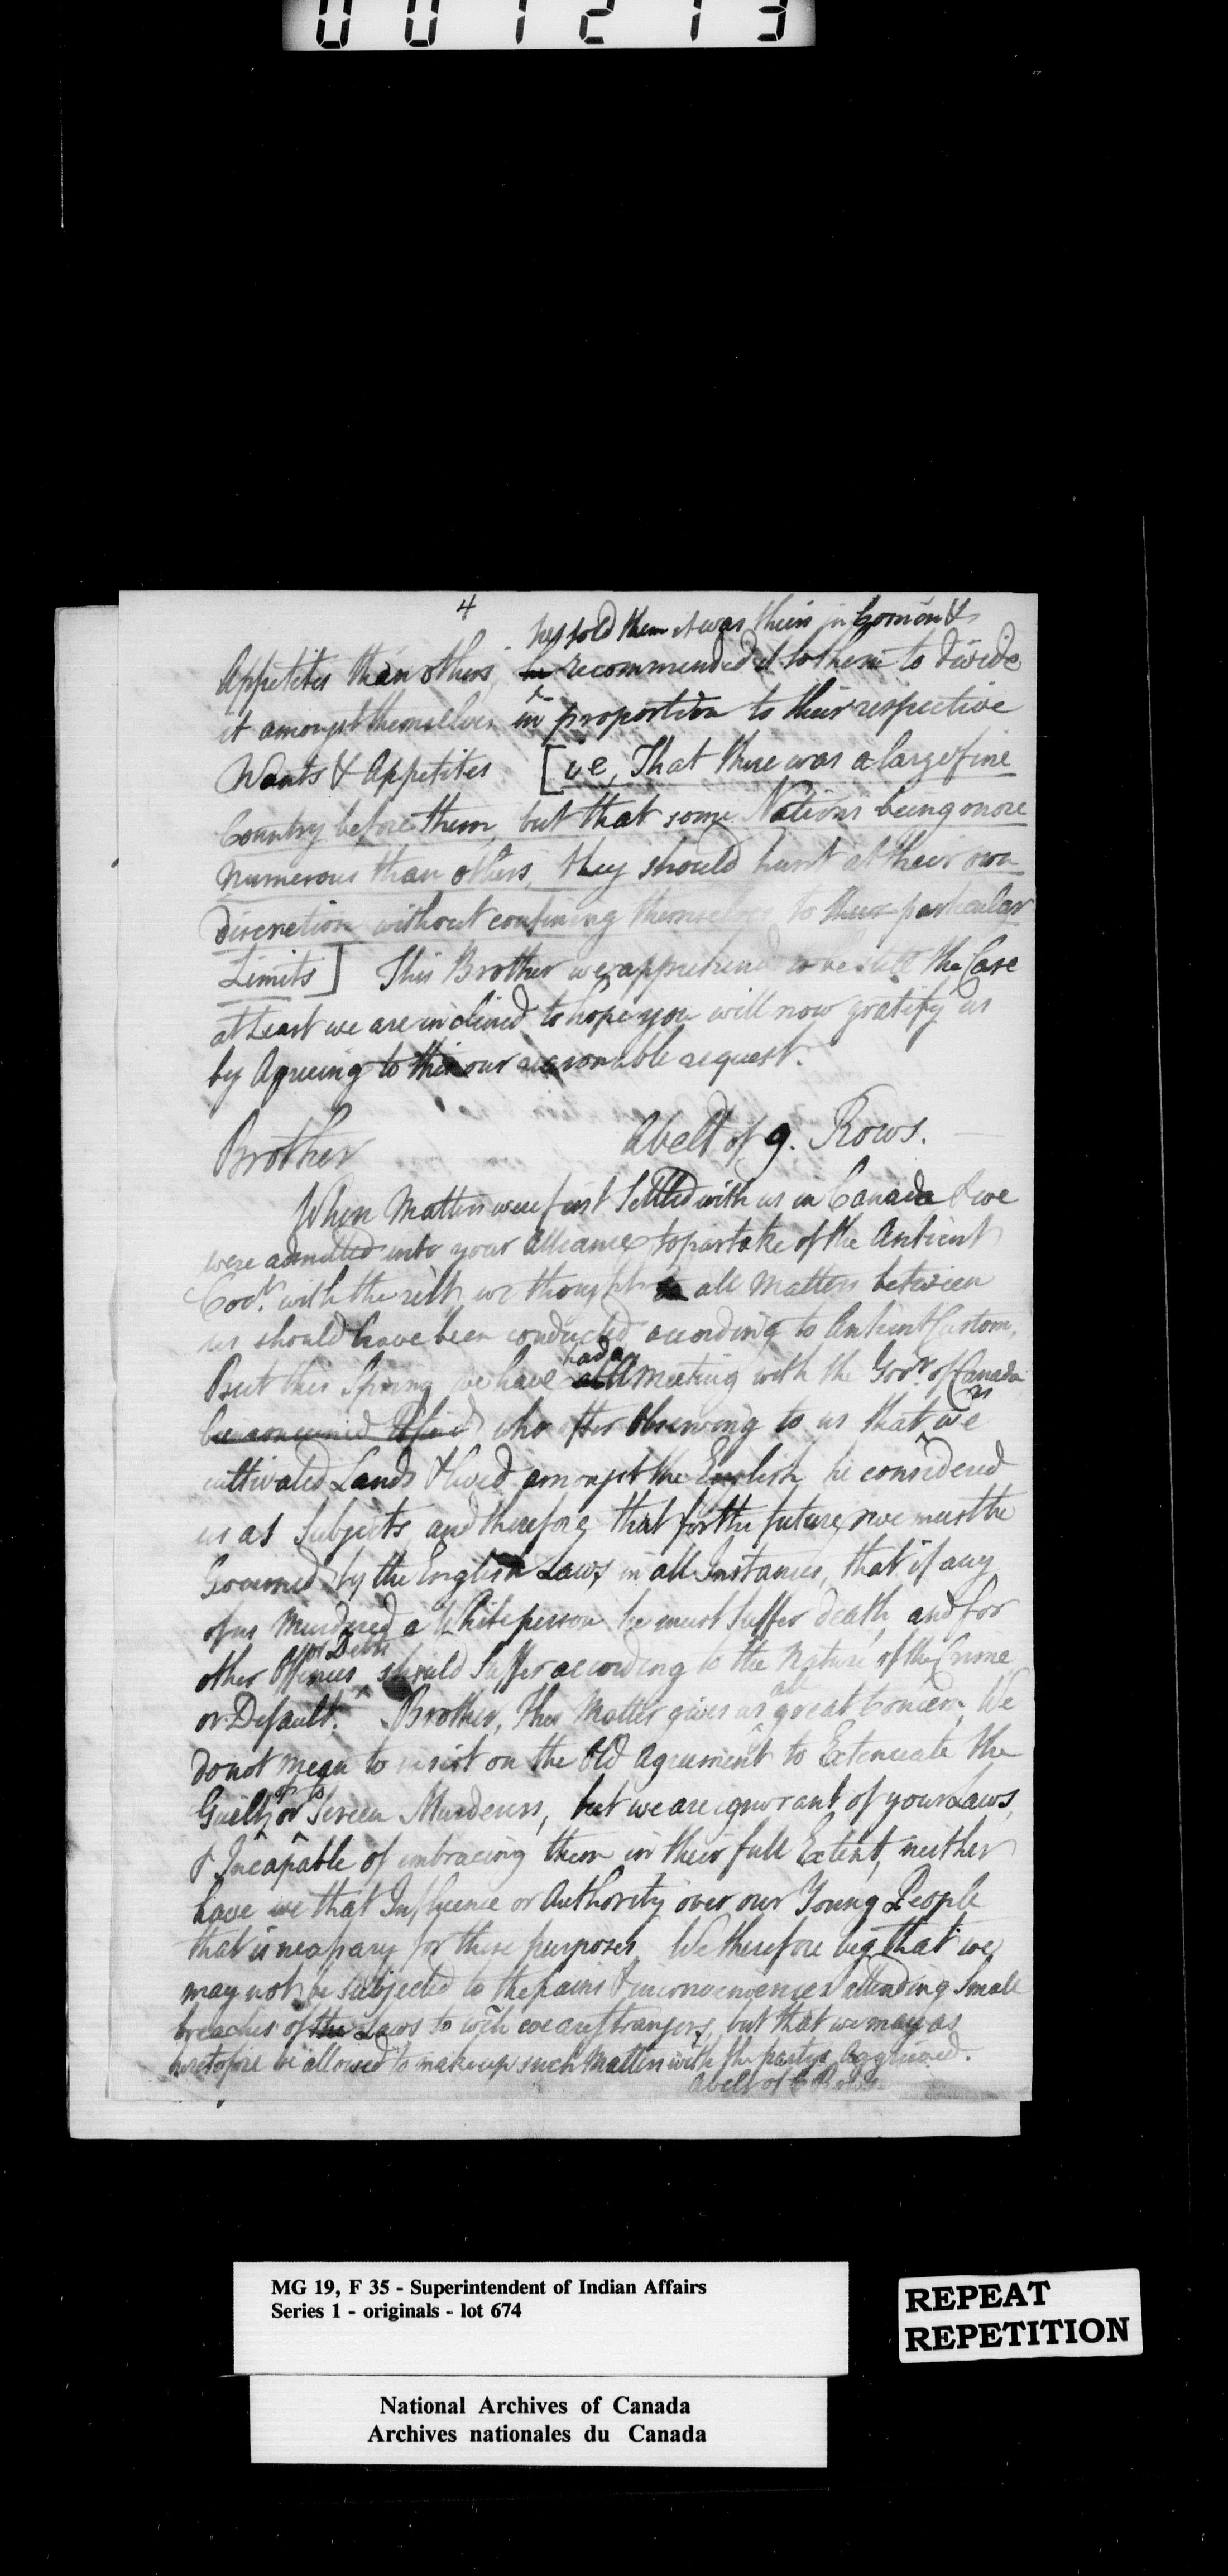 001213
4
he told them it was theirs in Com̄on &
Appetites than others, he recommended it to them to divide
it amongst themselves in proportion to their respective
Wants & Appetites [ie, That there was a large fine
Country before them, but that some Nations being more
numerous than others, they should hunt at their own
discretion without confining themselves to their particular
Limits] This Brother we apprehend to be still the Case
at Least we are inclined to hope you will now gratify us
by Agreeing to this our reasonable request.
Brother
Abelt of 9. Rows.
When Matters were first Settled with us in Canada & we
were admitted into your Alliance, to partake of the Antient
Covt. with the rest, we thought all Matters between
us should have been conducted according to Antient Custom,
had a
But this Spring we have at a Meeting with the Govr. of Canada
as
been convened who after Observing to us that we
cultivated Lands & lived amongst the English, he considered
us as Subjects, and therefore that for the future, we must be
Governed by the English Laws in all Instances, that if any
of us Murdered a White person he must Suffer death, and for
or Debts
other Offences, should Suffer according to the nature of the Crime
all
or Default. Brother, This Matter gives us great Concern. We
do not mean to insist on the Old Agreement to Extenuate the
or to
Guilty or Screen Murderers, but we are ignorant of your Laws,
& Incapable of embracing them in their full Extent, neither
have we that Influence or Authority over our Young People
that is necessary for these purposes. We therefore beg that we
may not be subjected to the pains & inconveniences attending Small
breaches of the Laws to wch̄ we are strangers, but that we may as
heretofore be allowed to make up such Matters with the partys Aggrieved.
Abelt of 6 Rows.
MG 19, F 35 - Superintendent of Indian Affairs
Series 1 - originals - lot 674
REPEAT
REPETITION
National Archives of Canada
Archives nationales du Canada